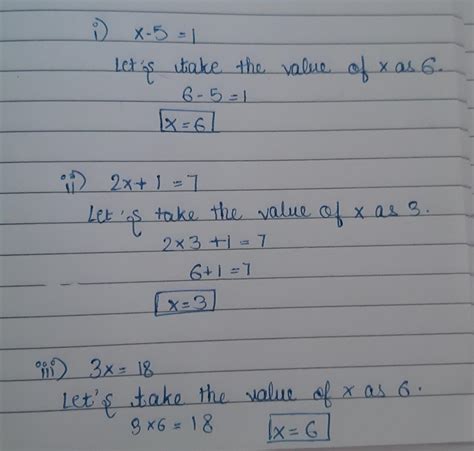 i) x-5=1
Let's take the value of x as 6.
6-5=1
x=6
ii) 2x+1=7
Let's take the value of x as 3.
2×3+1=7
6+1=7
x=3
iii) 3x=18
Let's take the value of x as 6.
3×6=18 x=6